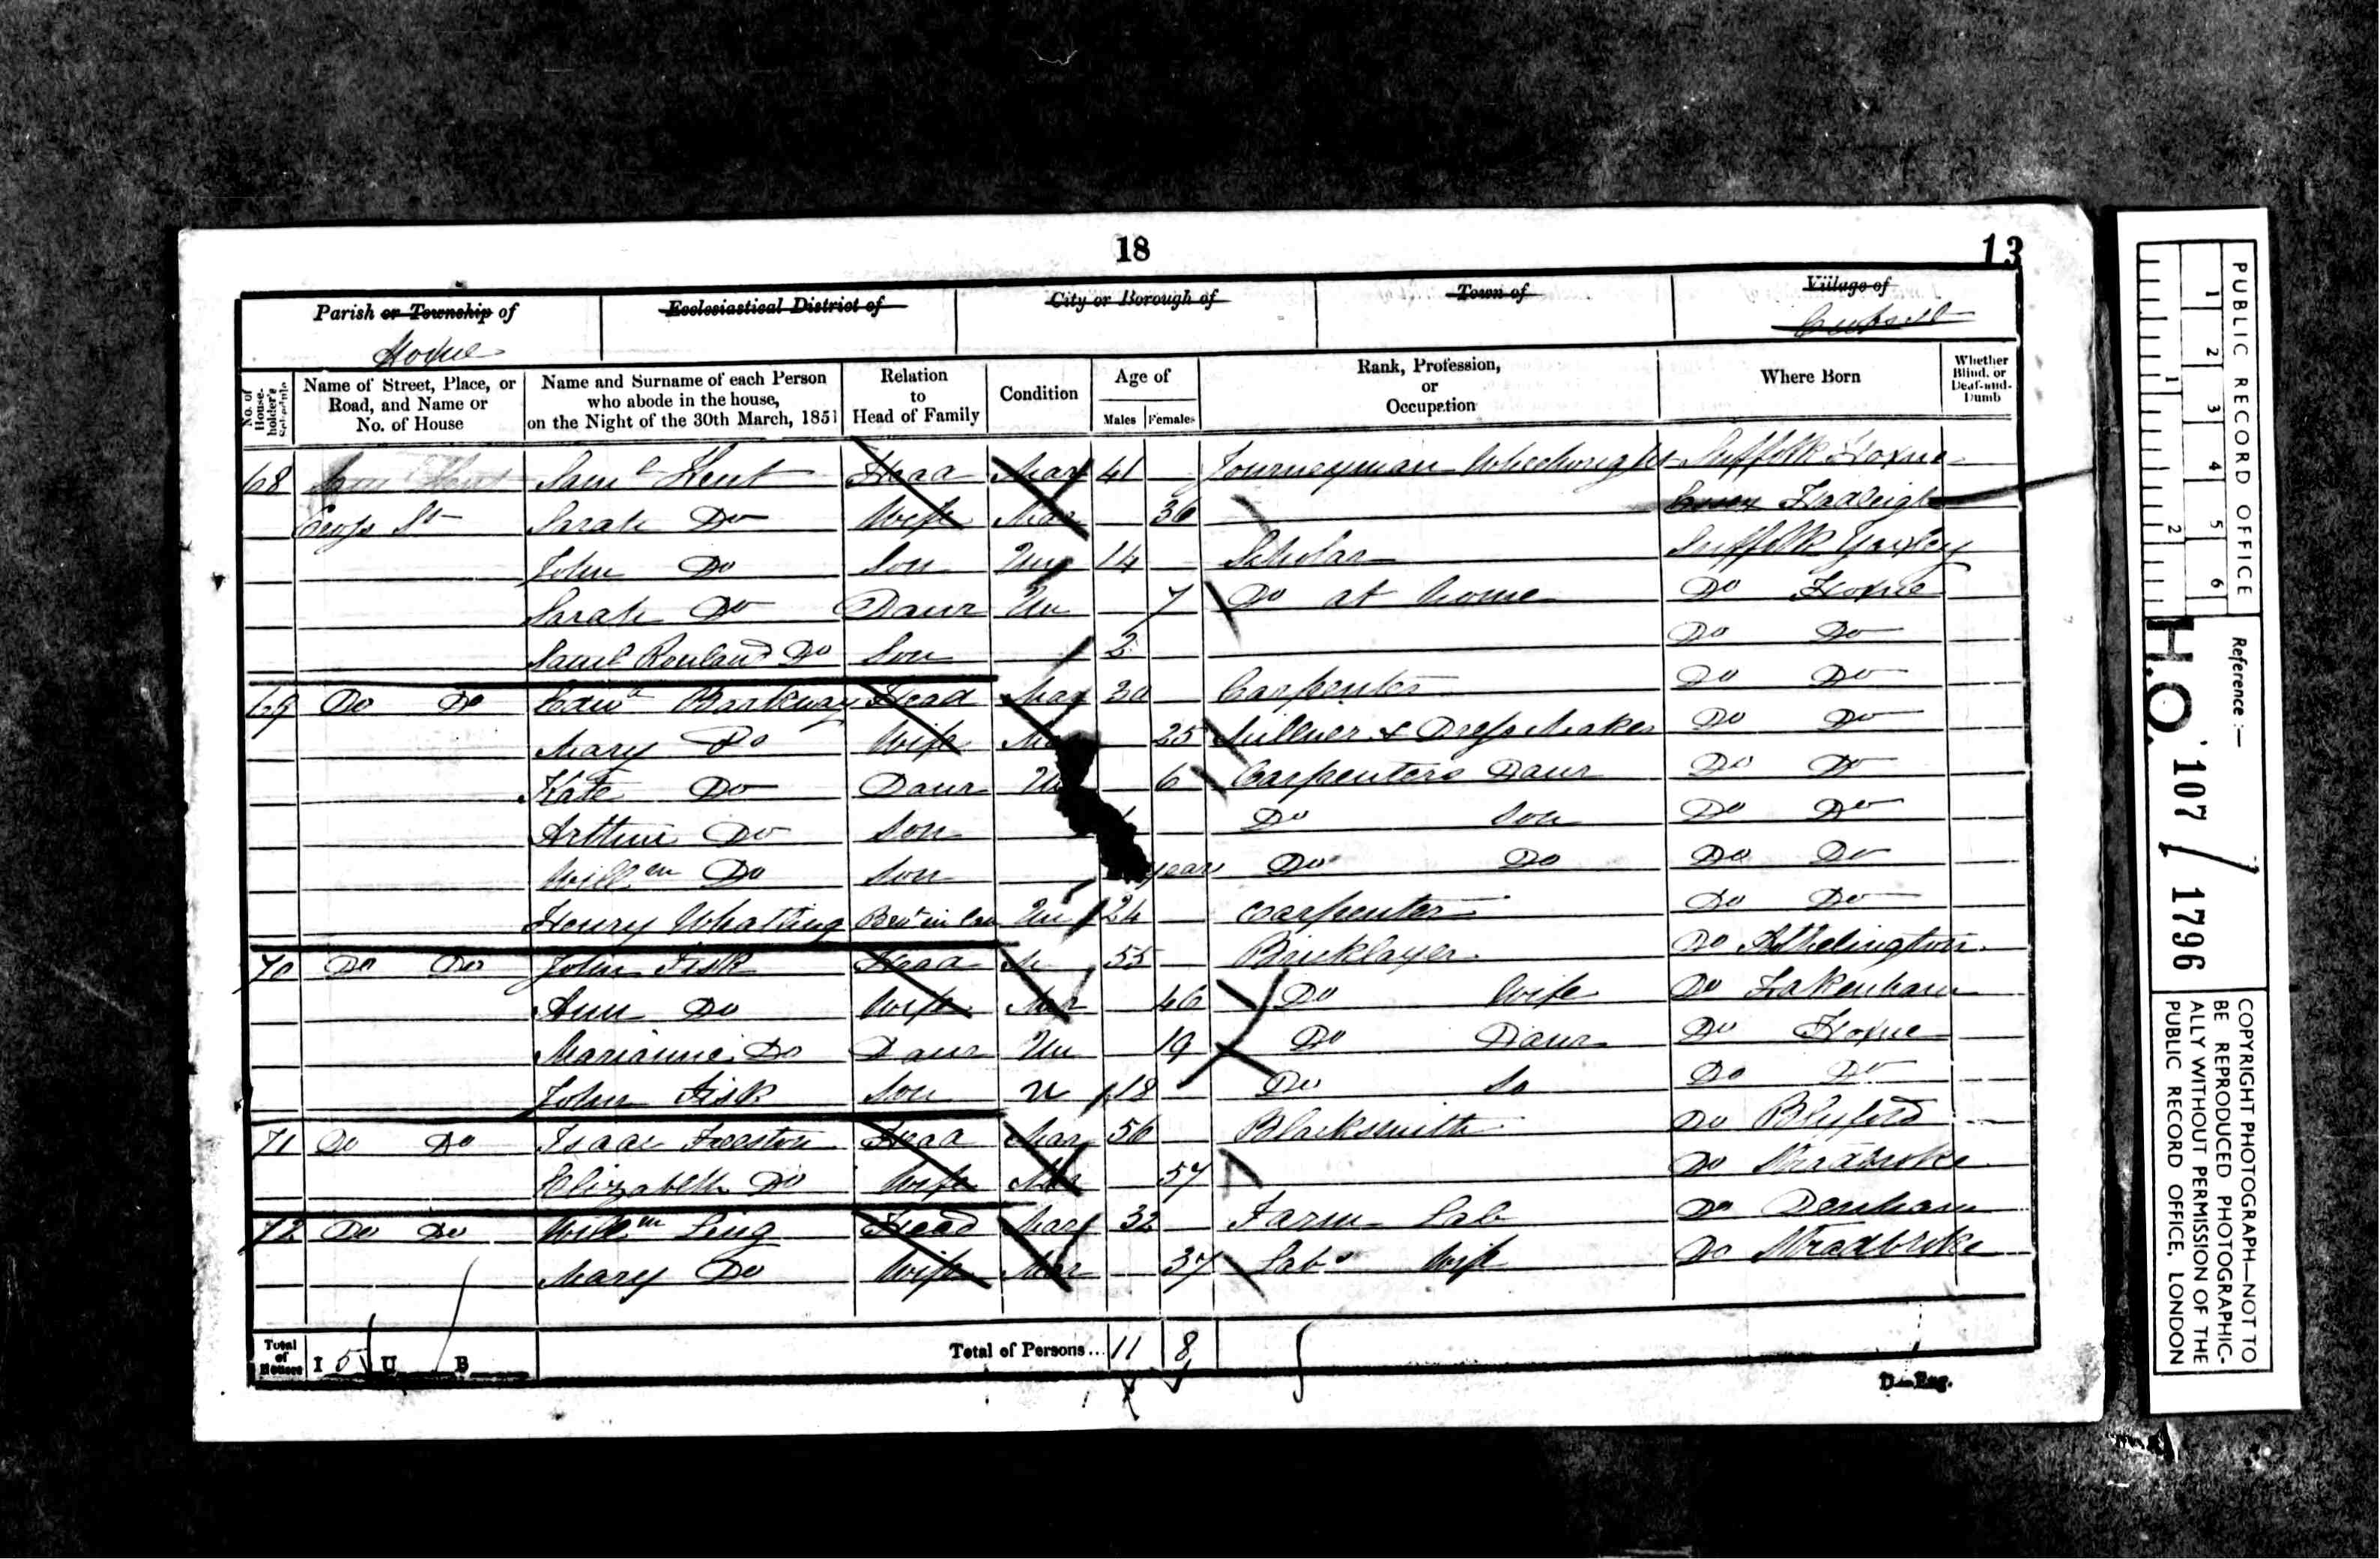 18
13
Parish or Township of
Ecclesiastical District of
City or Borough of
Town of
Village of
Hoxne
No. of House-holder's Schedule
Name of Street, Place, or Road, and Name or No. of House
Name and Surname of each Person who abode in the house, on the Night of the 30th March, 1851
Relation to Head of Family
Condition
Age of
Males Females
Rank, Profession, or Occupation
Where Born
Whether Blind, or Deaf-and-Dumb
68 Saml Kent Head Mar 41 Journeyman Wheelwright Suffolk Hoxne
Cross St Sarah Do Wife Mar 36 Hadleigh
John Do Son Un 14 Scholar Suffolk Yaxley
Sarah Do Daur Un 7 Do at home Do Hoxne
Saml Rowland Do Son 2 Do Do
69 Do Do Edwd Barkway Head Mar 30 Carpenter Do Do
Mary Do Wife 25 Milliner & Dress Maker Do Do
Kate Do Daur 6 Carpenters Daur Do Do
Arthur Do Son Do Son Do Do
Willm Do Son year Do Do Do Do
Henry Whatling Brotr in law Un 24 Carpenter Do Do
70 Do Do John Fisk Head M 55 Bricklayer Do Athelington
Ann Do Wife Mar 46 Do Wife Do Fakenham
Marianne Do Daur Un 19 Do Daur Do Hoxne
John Fisk Son U 18 Do So Do Do
71 Do Do Isaac Freeston Head Mar 56 Blacksmith Do Blyford
Elizabeth Do Wife Mar 57 Do Stradbroke
72 Do Do Willm Ling Head Mar 32 Farm Lab Do Denham
Mary Do Wife Mar 37 Labr Wife Do Stradbroke
Total of Houses I 5 U B
Total of Persons... 11 8
D—Eng.
PUBLIC RECORD OFFICE
1 2 3 4 5 6
1 2
Reference:—
H.O. 107 / 1796
COPYRIGHT PHOTOGRAPH—NOT TO
BE REPRODUCED PHOTOGRAPHIC-
ALLY WITHOUT PERMISSION OF THE
PUBLIC RECORD OFFICE, LONDON